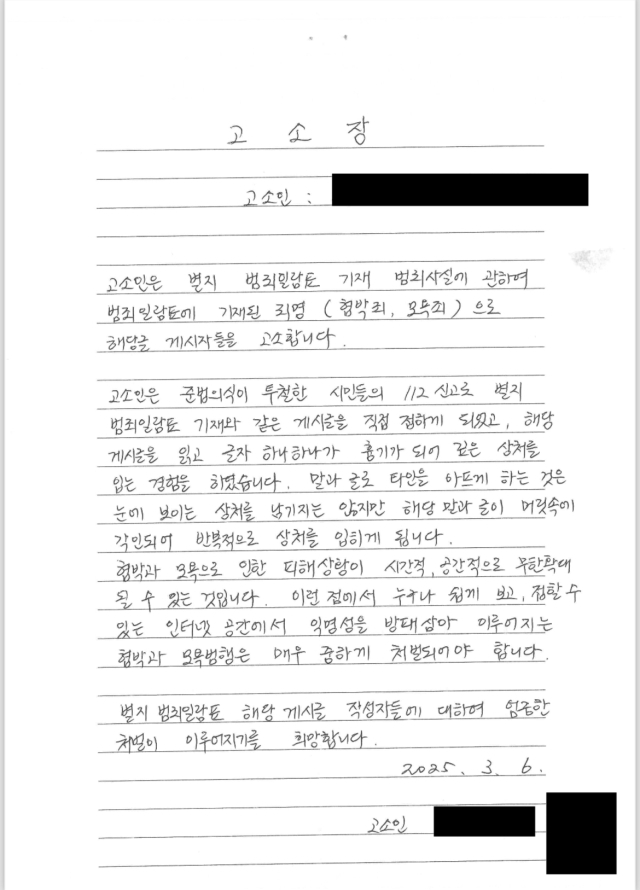 고 소 장
고소인 :
고소인은 별지 범죄일람표 기재 범죄사실에 관하여
범죄일람표에 기재된 죄명 ( 협박죄, 모욕죄 ) 으로
해당글 게시자들을 고소합니다.
고소인은 준법의식이 투철한 시민들의 112 신고로 별지
범죄일람표 기재와 같은 게시글을 직접 접하게 되었고, 해당
게시글을 읽고 글자 하나하나가 흉기가 되어 깊은 상처를
입는 경험을 하였습니다. 말과 글로 타인을 아프게 하는 것은
눈에 보이는 상처를 남기지는 않지만 해당 말과 글이 머릿속에
각인되어 반복적으로 상처를 입히게 됩니다.
협박과 모욕으로 인한 피해상황이 시간적, 공간적으로 무한확대
될 수 있는 것입니다. 이런 점에서 누구나 쉽게 보고, 접할 수
있는 인터넷 공간에서 익명성을 방패삼아 이루어지는
협박과 모욕범행은 매우 중하게 처벌되어야 합니다.
별지 범죄일람표 해당 게시글 작성자들에 대하여 엄중한
처벌이 이루어지기를 희망합니다.
2025. 3. 6.
고소인